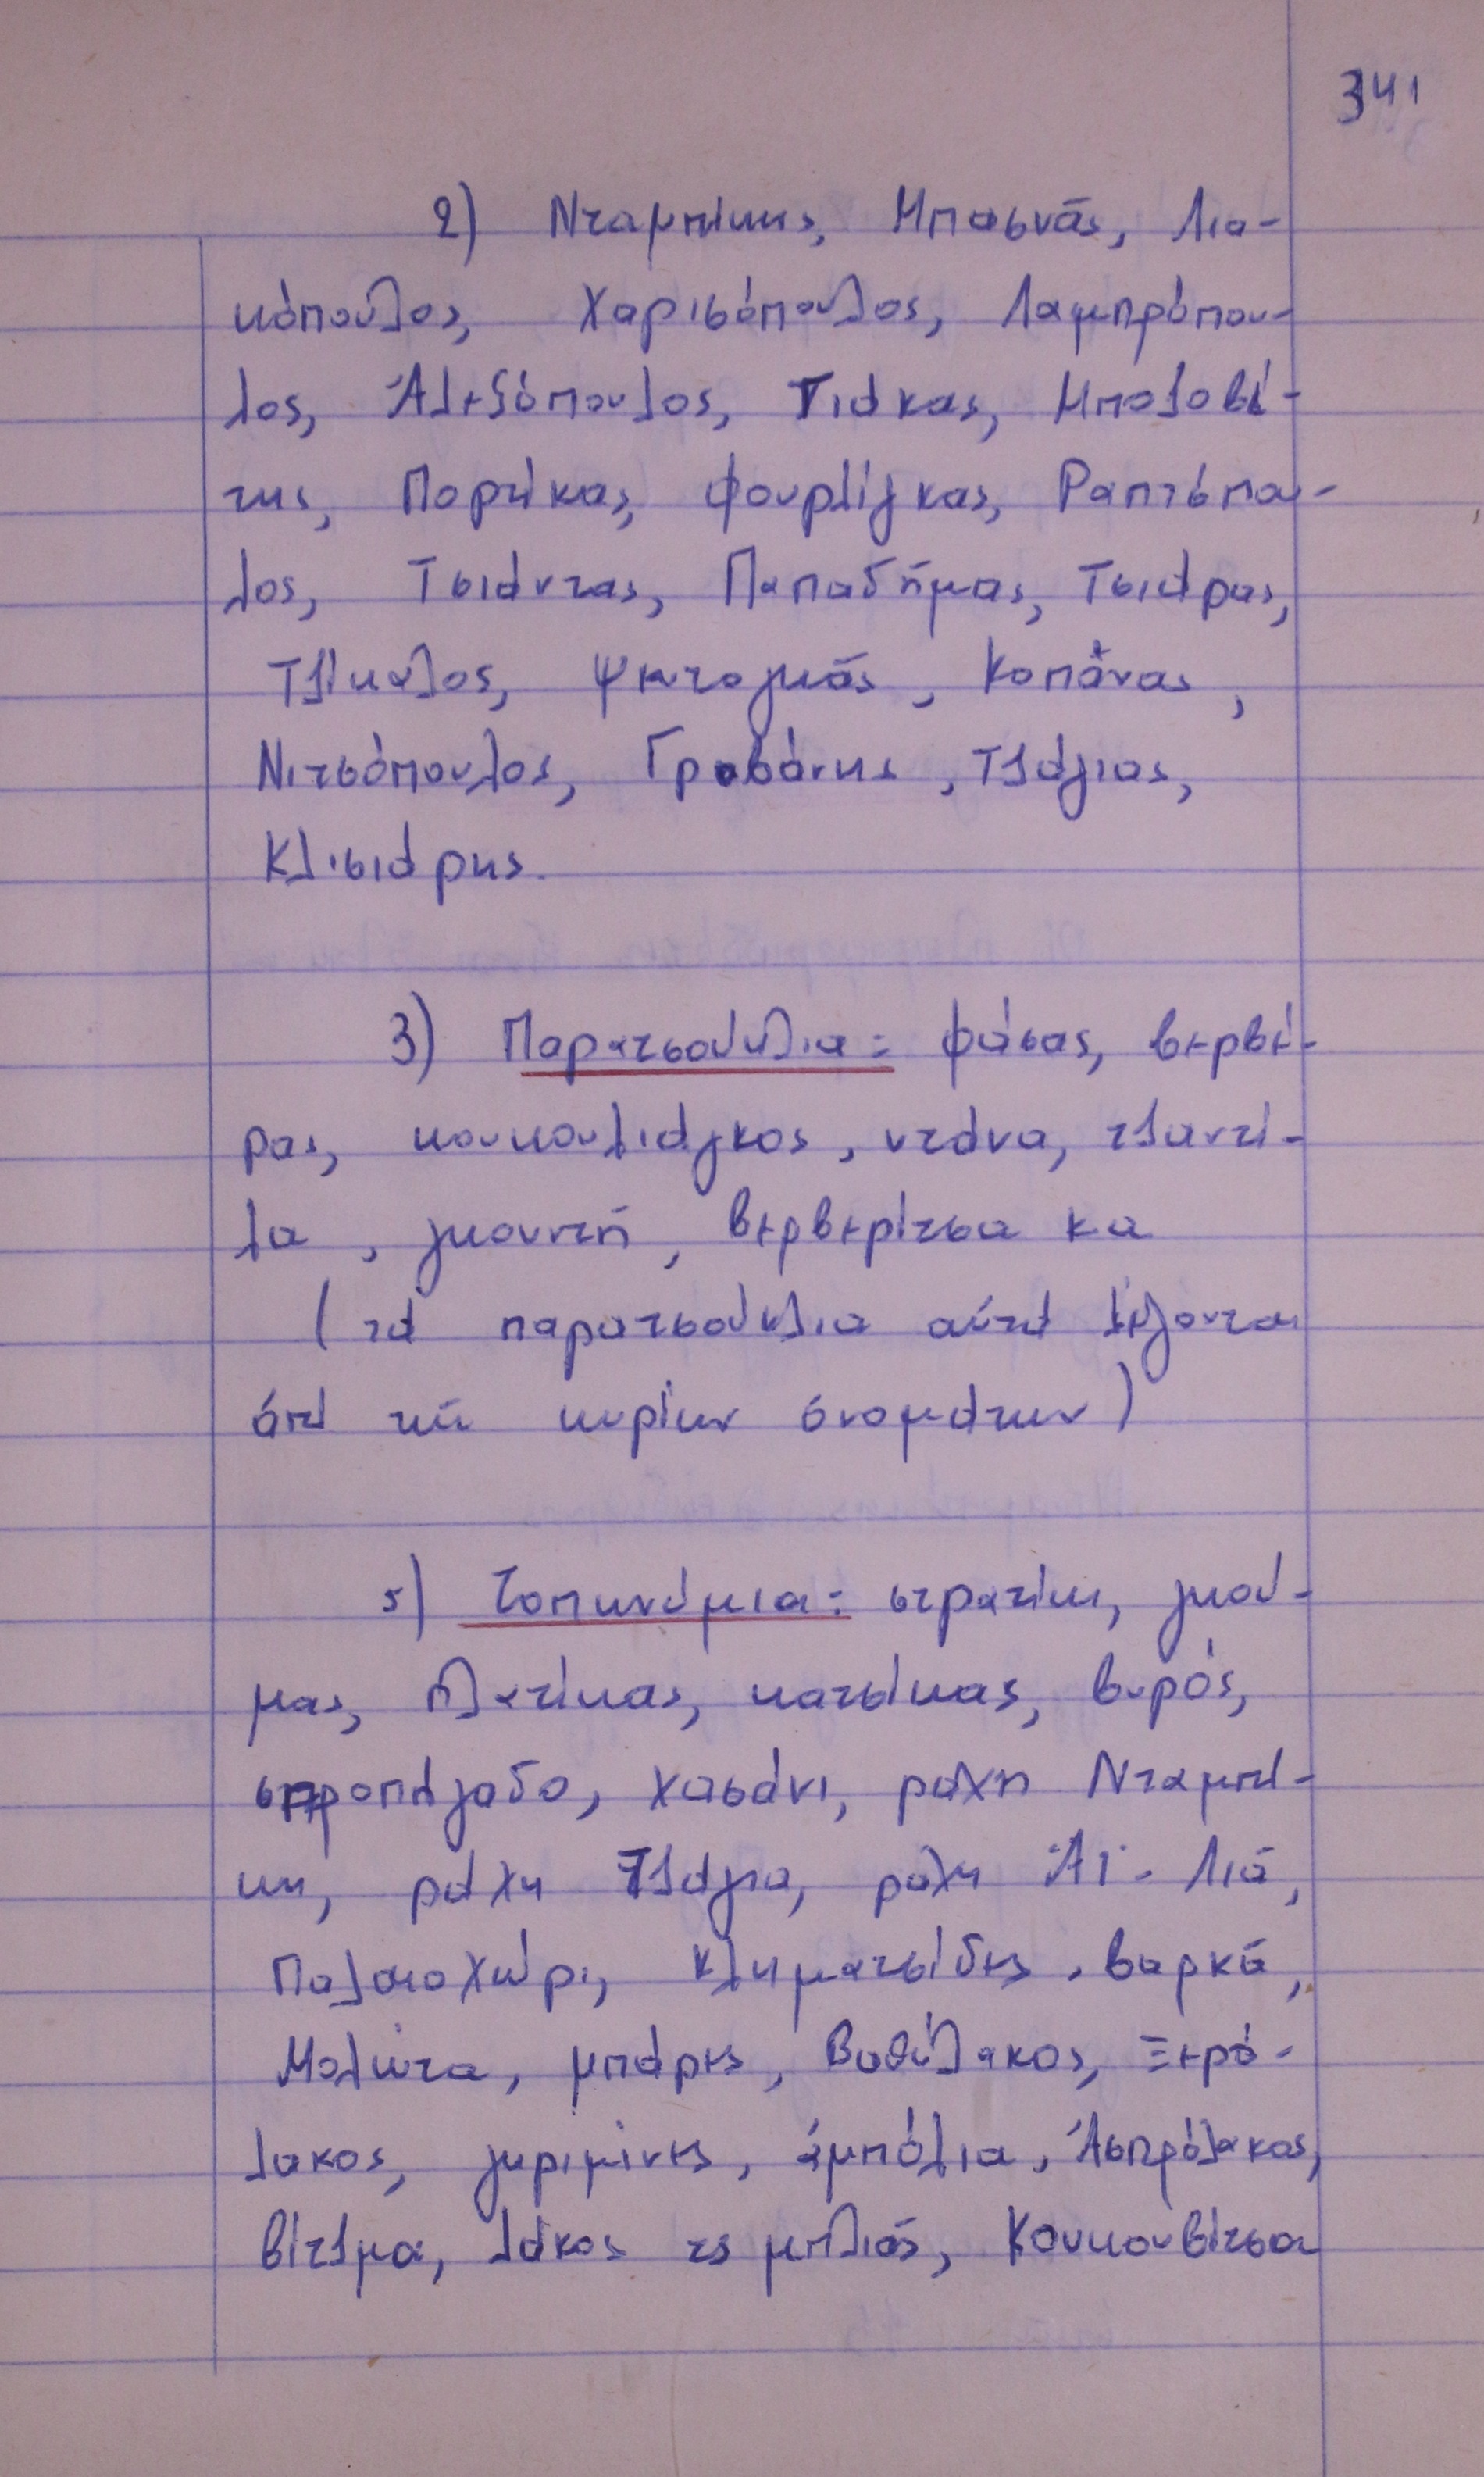 341
2) Νταμπίκης, Μπασιάς, Λια-
κόπουλος, Χαρισόπουλος, Λαμπρόπου-
λος, Ἀλεξόπουλος, Γιάκας, Μπολοβέ-
της, Πορτίκας, Φουρλίγκας, Ραπτόπου-
λος, Τσιάντας, Παπαδήμας, Τσιάρας,
Τζίκαλος, Ψευτογκάς, Κοπάνας,
Νιτσόπουλος, Γραβάνης, Τζάγιας,
Κλισιάρης.
3) Παρατσούκλια: φάσας, βερβέ-
ρας, κουκουλιάγκος, ντάνα, τζαντί-
λα, γκουντή, βερβερίτσα κα
(τά παρατσούκλια αὐτά λέγονται
ἀπί τῶν κυρίων ὀνομάτων)
5) Τοπωνύμια: στρατίκι, γκού-
μας, πλατίκας, κατσίκας, βυρός,
σπροπήγαδο, χασάνι, ράχη Νταμπί-
κη, ράχη Τζάγια, ράχη Ἁϊ-Λιά,
Παλαιοχώρι, κληματσίδες, βαρκά,
Μολώτα, μπάρες, Βαθύλακος, Ξερό-
λακος, γκριμίνες, ἀμπόλια, Ἀσπρόλακας,
βίτζμα, λάκος τς μπλιάς, Κουκουβίτσα